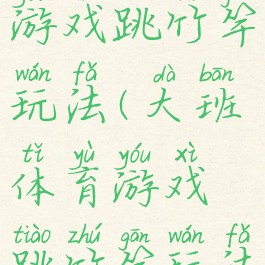 游戏跳竹竿
wán fǎ dà bān
玩法(大班
tǐ yù yóu xì
体育游戏
tiào zhú gān wán fǎ
跳竹竿玩法